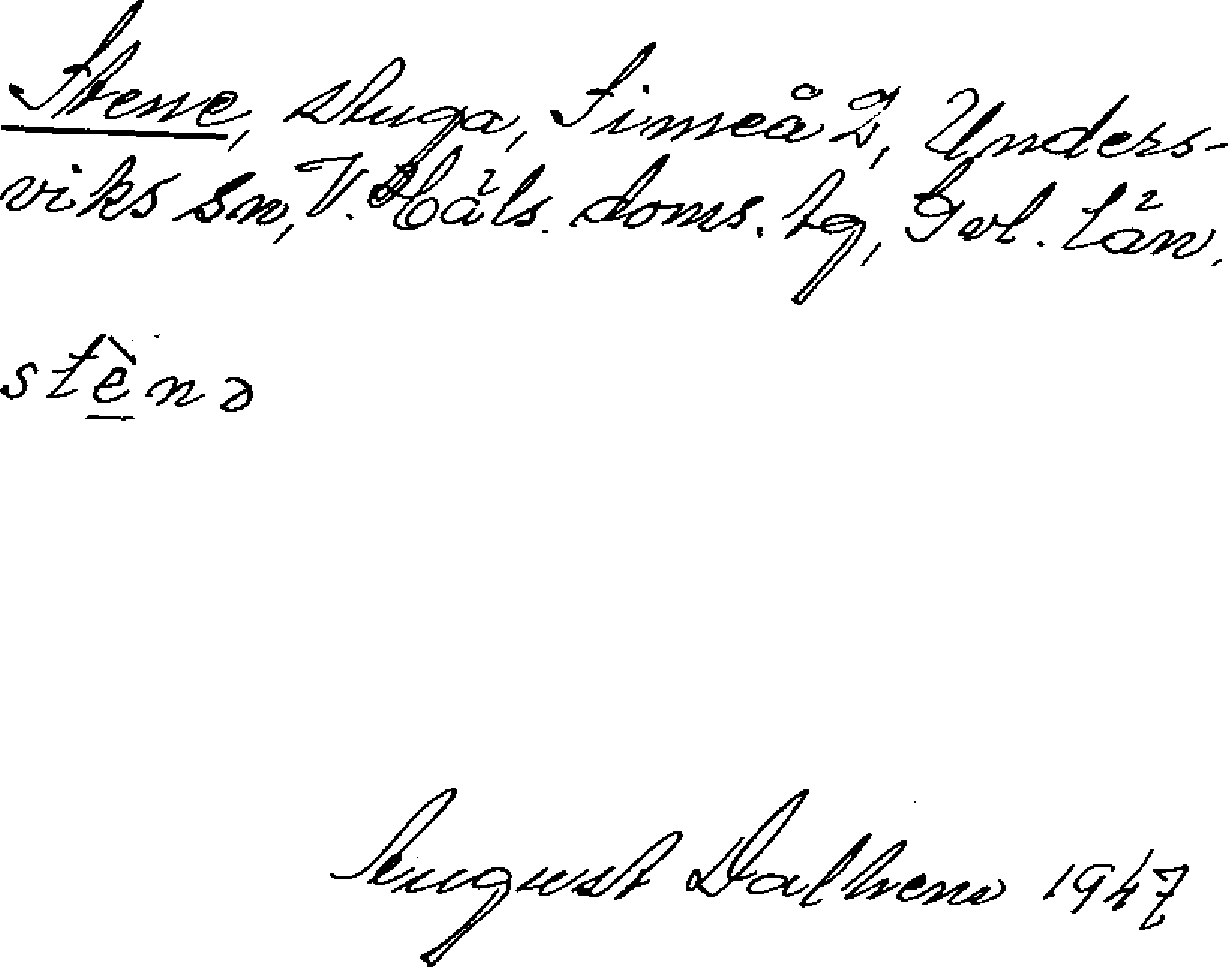 Stene, stuga, Simeå 2, Unders-
viks sn, V. Häls. doms. hg, Gvl. län.
stènə
August Dalhem 1947